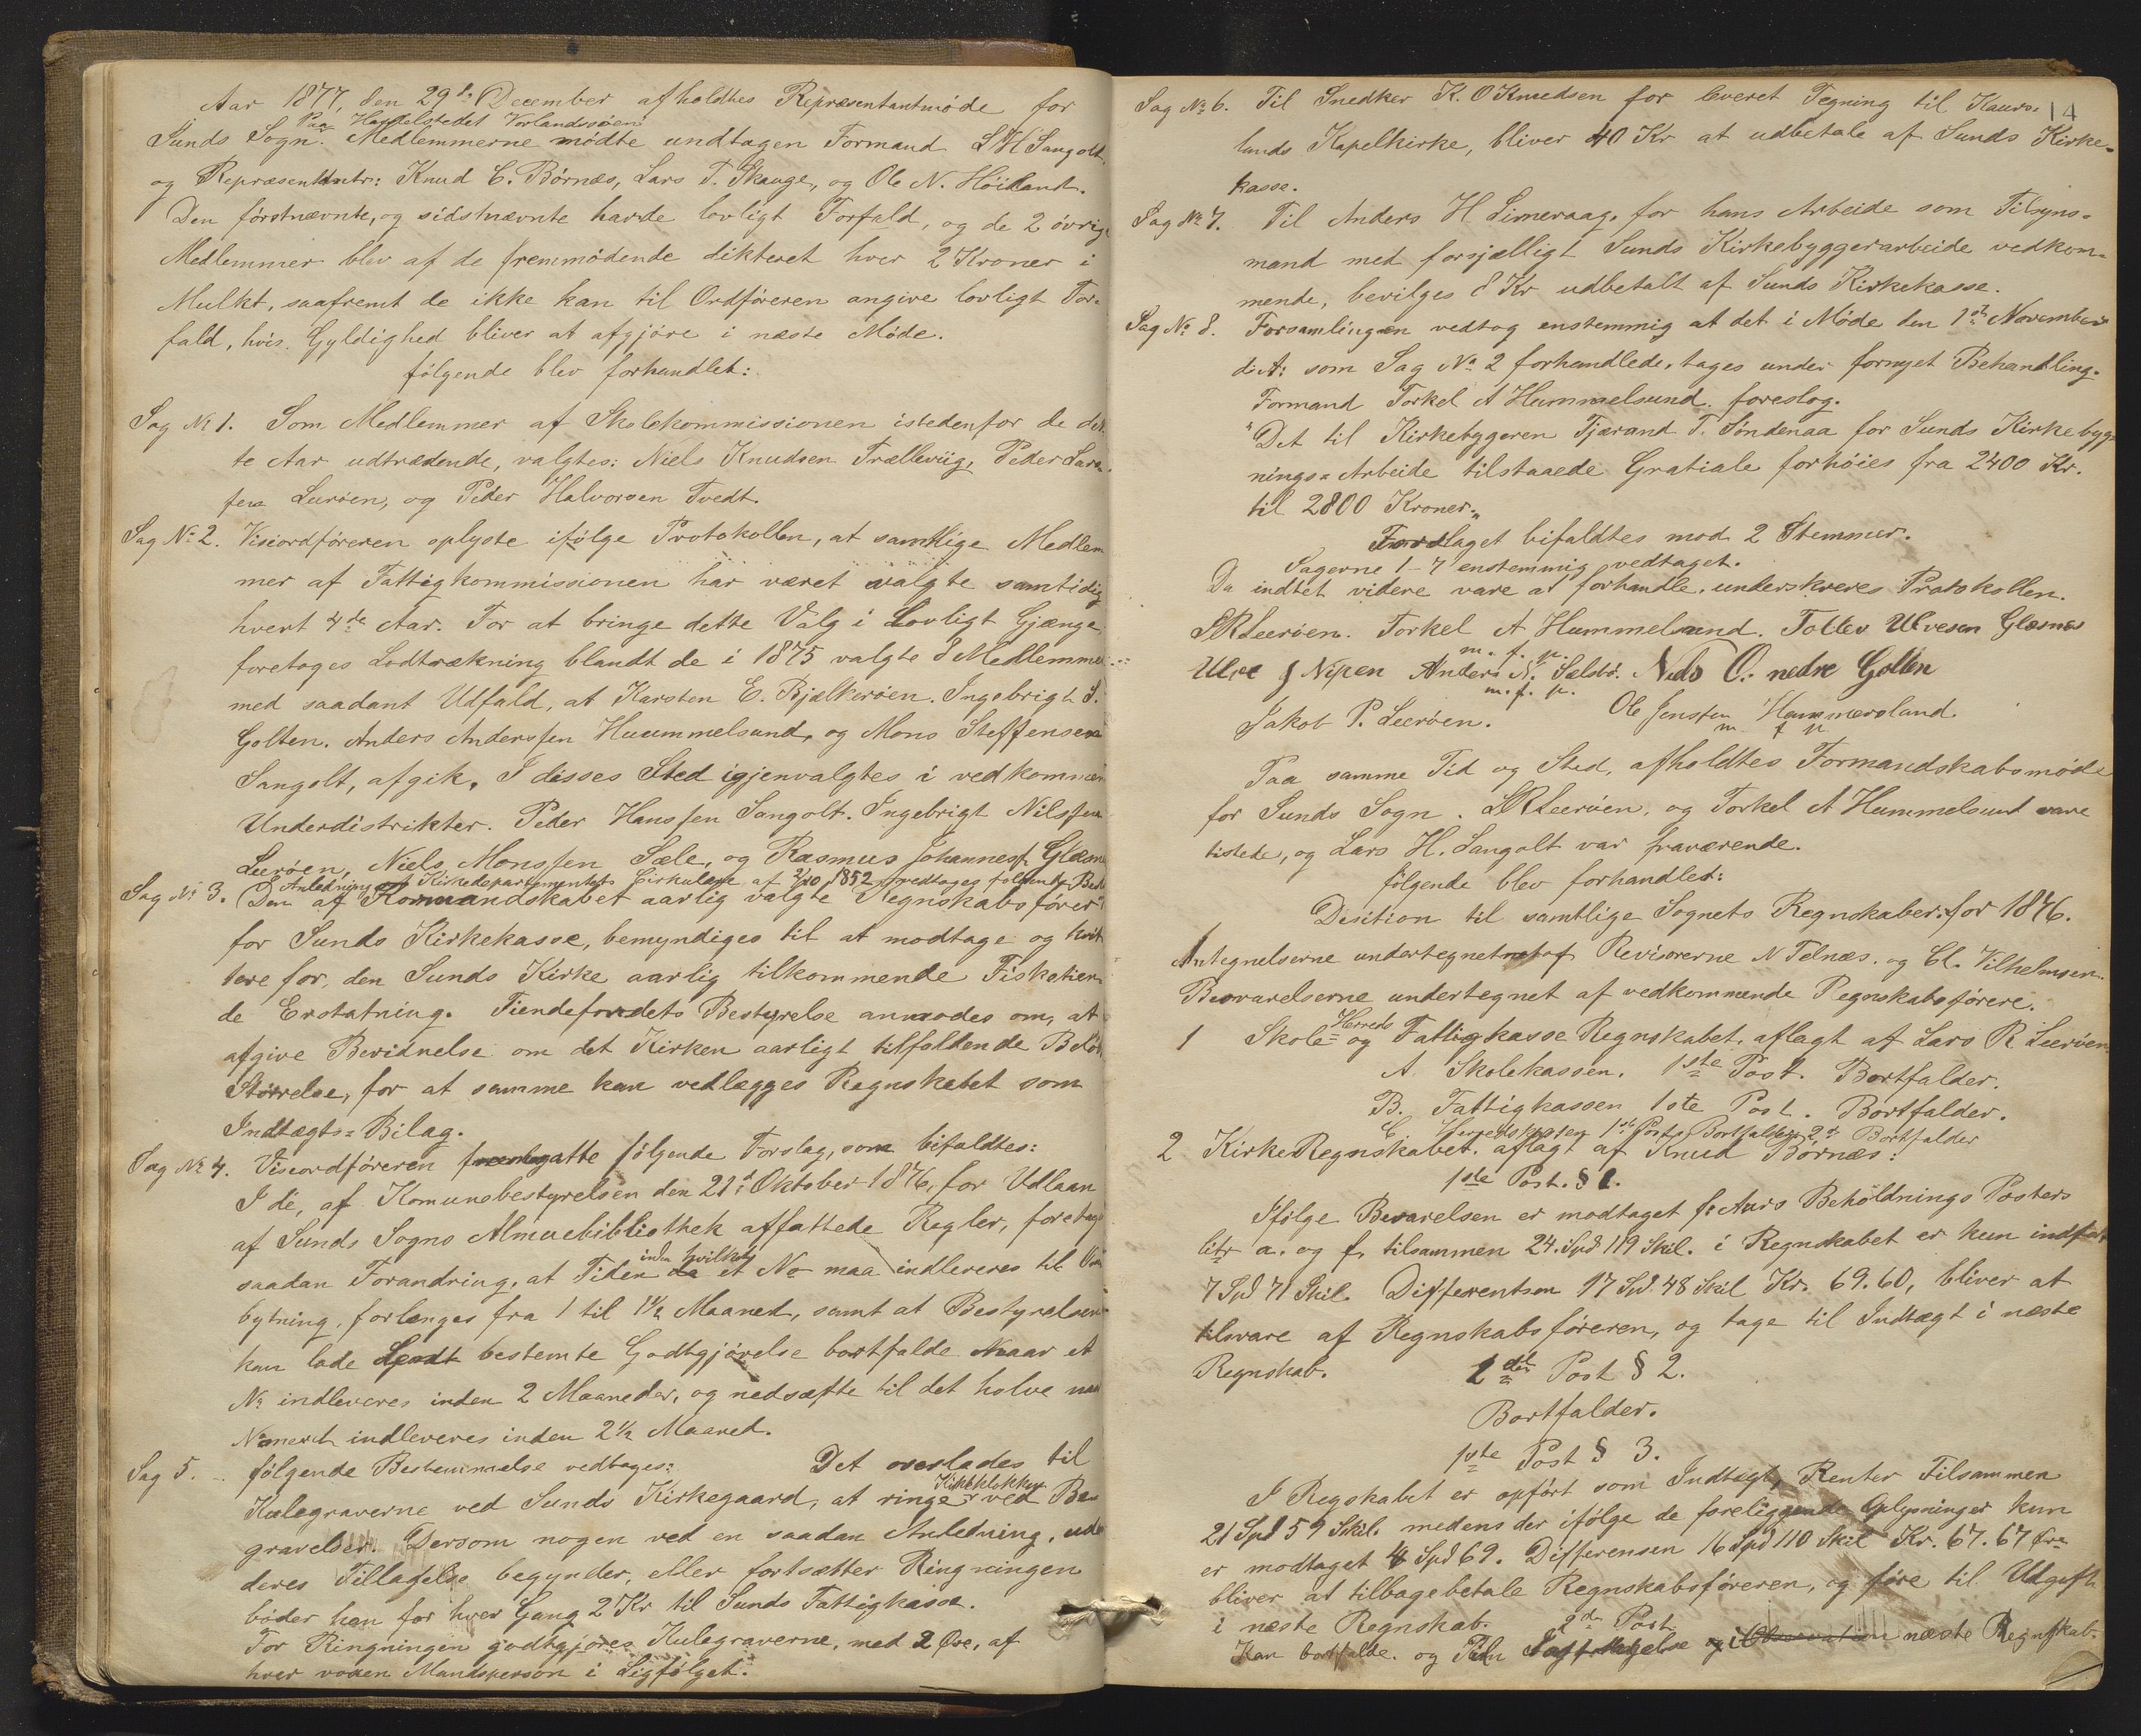 Aar 1877, den 29de December afholdtes Repræsentantmøde for
Paa Handelstedet Vorlandsøen
Sunds Sogn. Medlemmerne mødte undtagen Formand L H Sangolt
og Repræsentantr: Knud C. Børnæs, Lars T. Skauge, og Ole N. Höiland.
Den förstnævnte, og sidstnævnte havde lovligt Forfald, og de 2 övrige
Medlemmer blev af de fremmødende dikteret hver 2 Kroner i
Mulkt, saafremt de ikke kan til Ordføreren angive lovligt For-
fald, hvis Gyldighed bliver at afgjöre i næste Møde.
følgende blev forhandlet:
Sag No 1. Som Medlemmer af Skolekommissionen istedenfor de det
te Aar udtrædende, valgtes: Niels Knudsen Trælleviig, Peder Lars
sen Leeröen, og Peder Halvorsen Tvedt.
Sag No 2. Viseordføreren oplyste ifølge Protokollen, at samtlige Medlem
mer af Fattigkommissionen har været valgte samtidig
hvert 4de Aar. For at bringe dette Valg i Lovligt Gjænge
foretoges Lodtrækning blandt de i 1875 valgte 8 Medlemmer
med saadant Udfald, at Karsten E. Bjælkeröen. Ingebrigt S.
Golten. Anders Anderssen Hummelsund, og Mons Steffensen
Sangolt, afgik. I disses Sted igjenvalgtes i vedkommen
Underdistrikter. Peder Hanssen Sangolt. Ingebrigt Nilssen
Leeröen, Niels Monssen Sæle, og Rasmus Johanness. Glæsn
Anledning af Kirkedepartementets Cirkulære af 2/10 1852 vedtages følgende Besl
Sag No 3. Den af Formandskabet aarlig valgte Regnskabsfører
for Sunds Kirkekasse, bemyndiges til at modtage og kvit
tere for, den Sunds Kirke aarlig tilkommende Fisketien
de Erstatning. Tiendefondets Bestyrelse anmodes om, at
afgive Bevidnelse om det Kirken aarligt tilfaldende Belöbs
Størrelse, for at samme kan vedlægges Regnskabet som
Indtægts=Bilag.
Sag No 4. Viseordføreren fremsatte følgende Forslag, som bifaldtes:
I de, af Komunebestyrelsen den 21de Oktober 1876, for Udlaan
af Sunds Sogns Almuebibliothek affattede Regler, foretages
inden hvilken
saadan Forandring, at Tiden et No maa indleveres til Om
bytning, forlænges fra 1 til 1½ Maaned, samt at Bestyrelsen
kan lade bestemte Godtgjörelse bortfalde Naar et
No indleveres inden 2 Maaneder, og nedsætte til det halve naar
Nomeret indleveres inden 2½ Maaned.
Sag 5. følgende Bestemmelse vedtages: Det overlades til
Kirkeklokken
Kulegraverne ved Sunds Kirkegaard, at ringe ved Be
gravelser. Dersom nogen ved en saadan Anledning, uden
deres Tilladelse begynder, eller fortsætter Ringningen
böder han for hver Gang 2 Kr til Sunds Fattigkasse.
For Ringningen godtgjøres Kulegraverne, med 2 Øre, af
hver voxen Mandsperson i Ligfølget.
14
Sag No 6. Til Snedker K. O Knudsen for leveret Tegning til Kaurs-
lunds Kapelkirke, bliver 40 Kr at udbetale af Sunds Kirke-
kasse.
Sag No 7. Til Anders H. Limeraag, for hans Arbeide som Tilsyns-
mand med forsjælligt Sunds Kirkebyggerarbeide vedkom-
mende, bevilges 8 Kr udbetalt af Sunds Kirkekasse.
Sag No 8. Forsamlingen vedtog enstemmig at det i Møde den 1ste November
d: A: som Sag No 2 forhandlede, tages under fornyet Behandling.
Formand Torkel A Hummelsund foreslog.
"Det til Kirkebyggeren Tjærand T. Söndenaa for Sunds Kirkebyg
nings=Arbeide tilstaaede Gratiale forhöies fra 2400 Kr.
til 2800 Kroner."
Forslaget bifaldtes mod 2 Stemmer.
Sagerne 1-7 enstemmig vedtaget.
Da indtet videre vare at forhandle, underskreves Protokollen.
L R Leeröen. Torkel A Hummelsund. Tollev Ulvesen Glesnes
m. f. p.
Ulve J Nipen Anders N. Sælsbö. Nids O. nedre Golten
m. f. p.
Jakob P. Leeröen. Ole Jenssen Hammersland.
m f p
Paa samme Tid og Sted, afholdtes Formandskabsmøde
for Sunds Sogn. L R Leeröen, og Torkel A Hummelsund vare
tistede, og Lars H. Sangolt var fraværende.
følgende blev forhandlet:
Desition til samtlige Sognets Regnskaber for 1876.
Antegnelserne undertegnet af Revisorerne N Telnæs. og Cl. Vilhelmsen.
Besvarelserne undertegnet af vedkommende Regnskabsførere.
Herreds
1 Skole= og Fattigkasse Regnskabet, aflagt af Lars R Leeröen
A. Skolekassen. 1ste Post. Bortfalder.
B. Fattigkassen 1ste Post. Bortfalder.
C Herredskassen 1ste Post Bortfalder 2d Bortfalder
2 Kirke Regnskabet. aflagt af Knud Börnæs:
1ste Post. § 1.
Ifølge Besvarelsen er modtaget f. Aars Beholdnings Posters
litr a. og f. tilsammen 24. Spd 119 Skil. i Regnskabet er kun indført
7 Spd 71 Skil. Differentsen 17 Spd. 48 Skil Kr. 69.60, bliver at
tilsvare af Regnskabsføreren, og tage til Indtægt i næste
Regnskab. 1ste Post § 2.
Bortfalder.
1ste Post § 3.
I Regskabet er opfört som Indtægt, Renter Tilsammen
21 Spd 59 Skil. medens der ifølge de foreliggende Oplysninger kun
er modtaget 4 Spd 69. Differensen 16 Spd 110 Skil Kr. 67.67 Øre
bliver at tilbagebetale Regnskabsføreren, og føre til Udgift
i næste Regnskab. 2den Post
Kan bortfalde. og næste Regnskab.